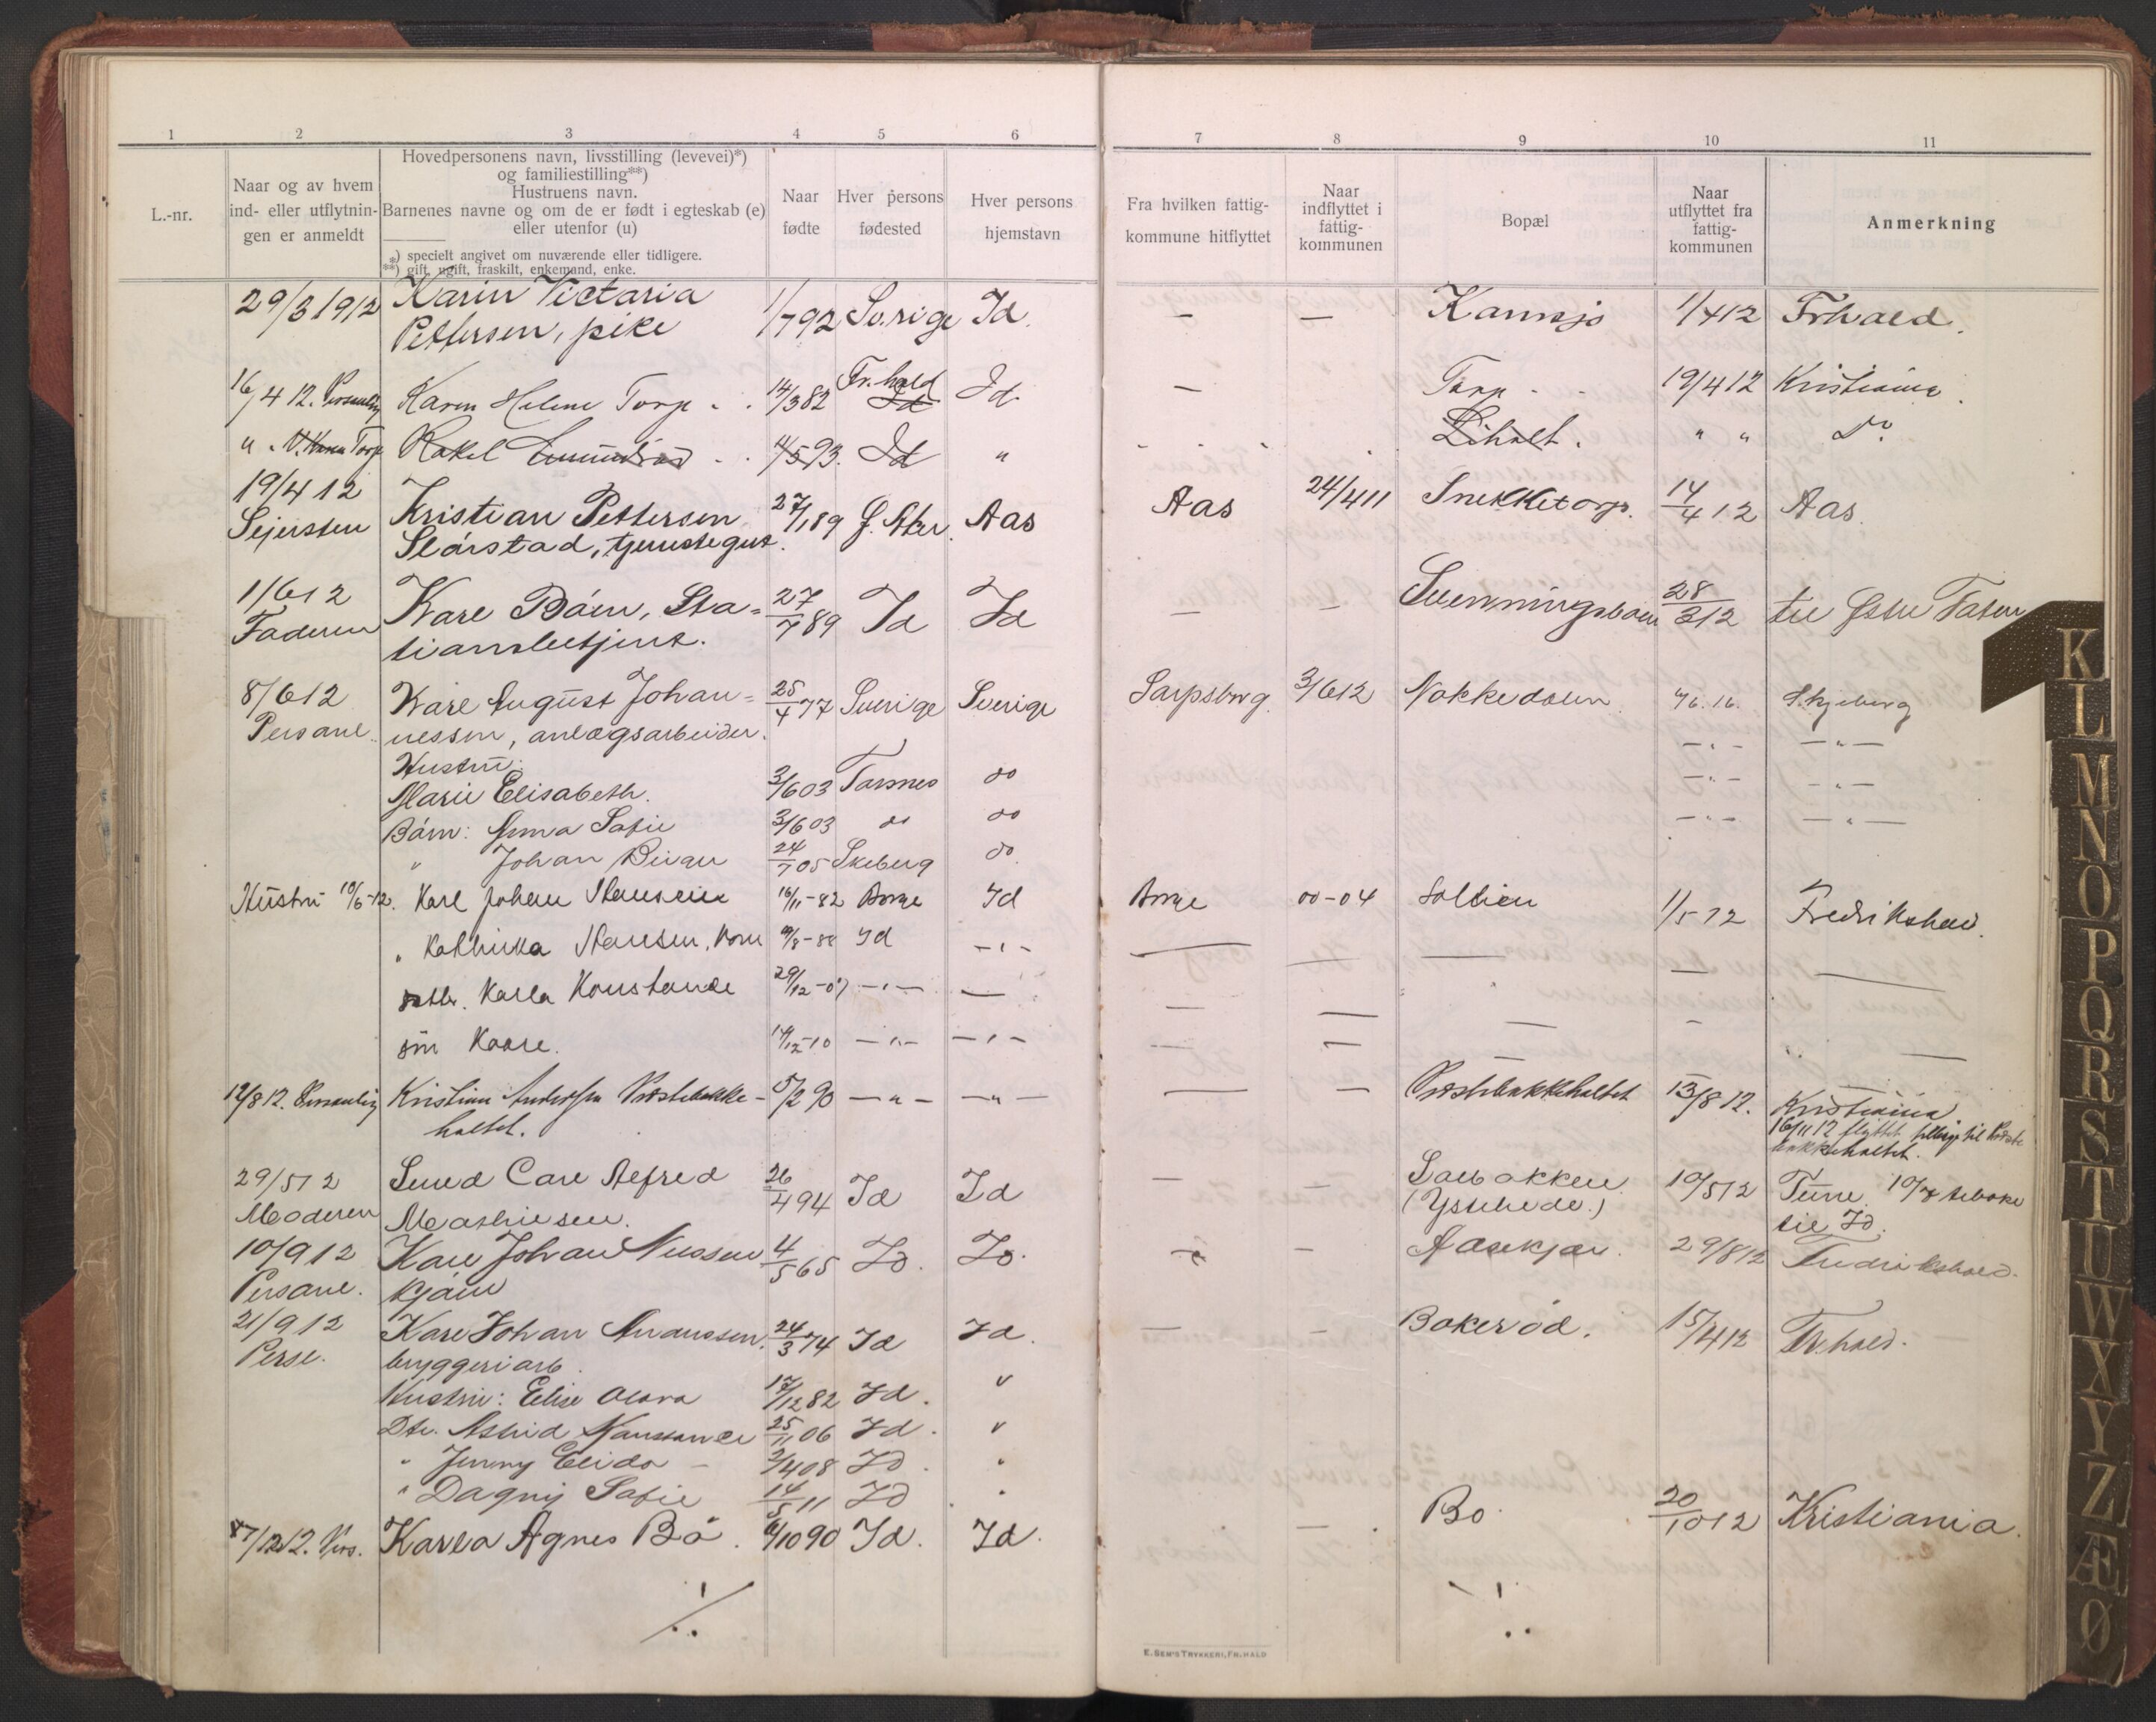 1 2 3 4 5 6 7 8 9 10 11
L.-nr.
Naar og av hvem
ind- eller utflytnin-
gen er anmeldt
Hovedpersonens navn, livsstilling (levevei)*)
og familiestilling**)
Hustruens navn.
Barnenes navne og om de er født i egteskab (e)
eller utenfor (u)
*) specielt angivet om nuværende eller tidligere.
**) gift, ugift, fraskilt, enkemand, enke.
Naar
fødte
Hver persons
fødested
Hver persons
hjemstavn
Fra hvilken fattig-
kommune hitflyttet
Naar
indflyttet i
fattig-
kommunen
Bopæl
Naar
utflyttet fra
fattig-
kommunen
Anmerkning
29/3 1912 Karin Victoria
Pettersen, pike 1/7 92 Sverige Id. — — Kornsjø 1/4 12 Frhald.
16/4 12. Personlig Karen Helene Torp 14/3 82 Fr.hald Id Id. — Torp 19/4 12 Kristiania.
" V. Karen Torp Rakel 4/5 93. Id " Liholt. " " Do
19/4 12
Sejersten Kristian Pettersen 27/1 89 Aas Aas 24/4 11 Snekketorp. 14/4 12 Aas.
Slørstad, tjenestegut.
1/6 12
Faderen Karl Bøen, Sta- 27/7 89 Id Id — — 28/3 12 til
tionsbetjent.
8/6 12 Karl August Johan- 25/4 77 Sverige Sverige Sarpsborg. 3/6 12 Nokkedalen Skjeberg
Personl. nessen, anlægsarbeider.
Hustru:
Marie Elisabeth. 3/6 03 do
Børn: Anna Sofie 3/6 03 do do
" Johan Birger 24/7 05 Skeberg do
Hustru 10/6-12. Karl Johan Hansen 16/11-82 Borge Id Borge 00-04 1/5-12 Fredrikshald.
" Kathinka Hansen, 9/8-88 Id — " —
dtr. Karla Konstanse 29/12-07 — " — —
søn Kaare. 14/12-10 — " — — " —
12/8 12. Personlig Kristian Andersen Prestebakke- 5/2 90 — " — — " — — — Prestebakkeholtet 13/8 12. Kristiania.
holtet. 16/11 12 flyttet tilbage til Preste
bakkeholtet.
29/5 12 Svend Carl Alfred 26/4 94 Id Id — — 10/5 12 Tune. 10/7 tilbake
Moderen Mathiesen. til Id.
10/9 12 Karl Johan Nilssen 4/5 65 Id. Id. — — 29/8 12 Fredrikshald.
Personl.
21/9 12 Karl Johan Andersen. 24/3 74 Id Id. — — Bokerød. 15/4 12 Fr.hald.
Persl. bryggeriarb.
Hustru: Elise Olava 17/12 82 Id. "
Dtr. Astrid 25/11 06 Id. "
" Jenny Elida 2/4 08 Id. "
" Dagny Sofie 14/5 11 Id "
7/12 12. Pers. Karla Agnes Bø. 6/10 90 Id. Id. — Bø 20/10 12 Kristiania.
E. SEM'S TRYKKERI, FR.HALD
K
L
M
N
O
P
Q
R
S
T
U
W
X
Y
Z
Æ
Ø